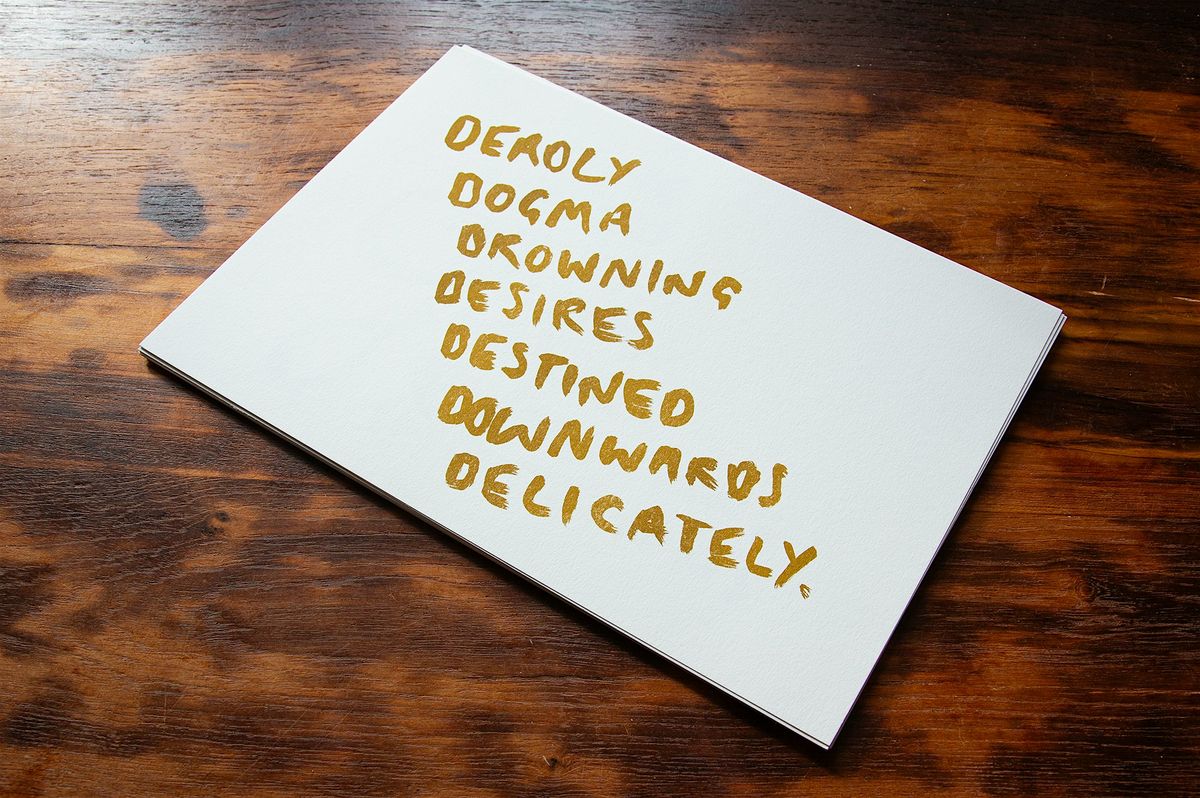 DEADLY
DOGMA
DROWNING
DESIRES
DESTINED
DOWNWARDS
DELICATELY.